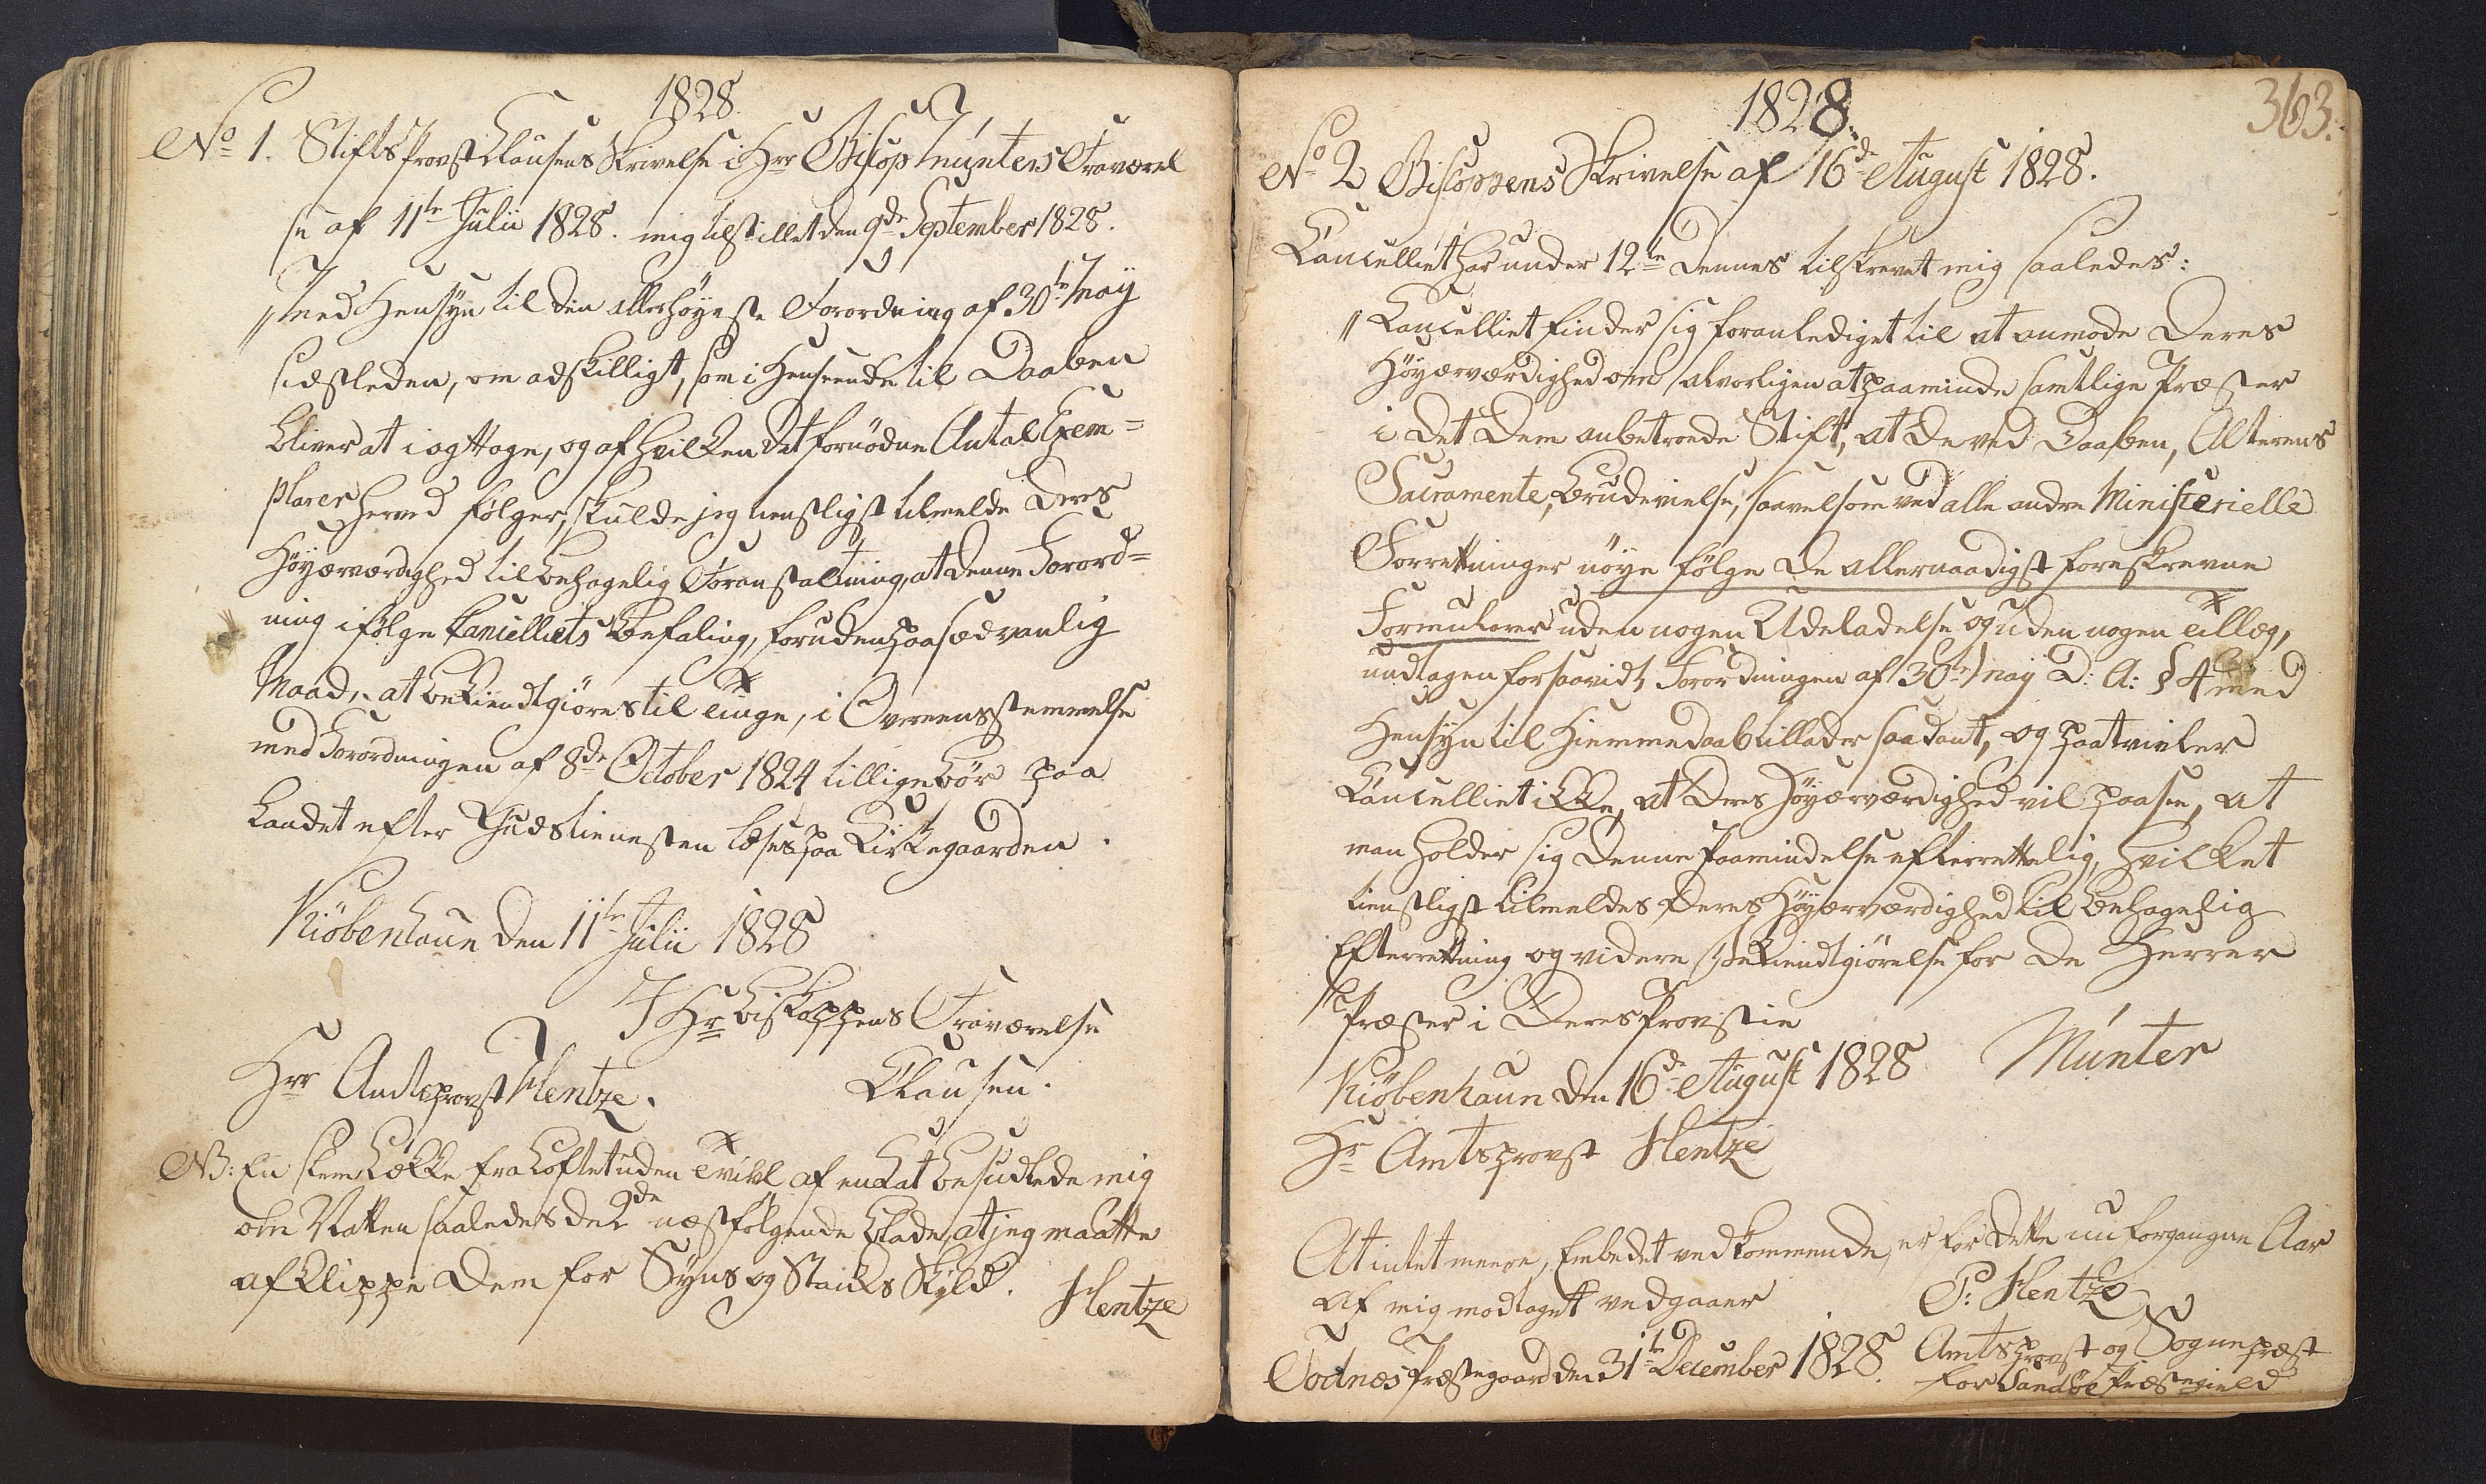 1828.
No 1. Stifts Provst Clausens Skrivelse i Hrr Biscop Münters Fraværel
se af 11te Julii 1828. mig tilstillet den 9de September 1828.
"Med Hensyn til den allerhöyeste Forordning af 30te May
sidstleden, om adskilligt, som i Henseende til Daaben
bliver at iagttage, og af hvilken det fornödne Antal Exem=
plarer herved fölger, skulde jeg tienstligst tilmelde Deres
Höyærværdighed til behagelig Foranstaltning, at denne Forord=
ning ifölge Cancelliets Befaling, foruden paa sædvanlig
Maade at bekiendtgiöres til Tinge, i Overeensstemmelse
med Forordningen af 8de October 1824 tillige bör paa
Landet efter Gudstienesten læses paa Kirkegaarden.
Kiöbenhavn den 11te Julii 1828
I Hr Biskoppens Fraværelse
Clausen.
Hrr Amtsprovst Hentze.
NB: En slem Lække fra Loftet uden Tvivl af en Kat besudlede mig
om Natten saaledes de 2de næstfölgende Blade, at jeg maatte
afklippe dem for Syns og Stanks Skyld. Hentze
1828.
363.
No 2 Biscoppens Skrivelse af 16de August 1828.
Cancelliet har under 12te dennes tilskrevet mig saaledes:
"Cancelliet finder sig foranlediget til at anmode Deres
Höyærværdighed om alvorligen at paaminde samtlige Præster
i det Dem anbetroede Stift, at de ved Daaben, Alterens
Sacramente, Brudevielse, saavelsom ved alle andre Ministerielle
Forretninger nöye fölge de allernaadigst foreskrevne
Formularer uden nogen Udeladelse og uden nogen Tillæg,
undtagen forsaavidt Forordningen af 30te May D: A: § 4 med
Hensyn til Hiemmedaab tillader saadant, og paatvivler
Cancelliet ikke, at Deres Höyærværdighed vil paasee, at
man holder sig denne Paamindelse efterrettelig, hvilket
tienstligst tilmeldes Deres Höyærværdighed til behagelig
Efterretning og videre Bekiendtgiörelse for de Herrer
Præster i Deres Provstie
Kiöbenhavn den 16de August 1828 Münter
Hr Amtsprovst Hentze
At intet meere, Embedet vedkommende, er for dette nu forgangne Aar
af mig modtaget vedgaaer
P: Hentze
Todnes Præstegaard den 31te December 1828. Amtsprovst og Sognepræst
for Sandöe Præstegield